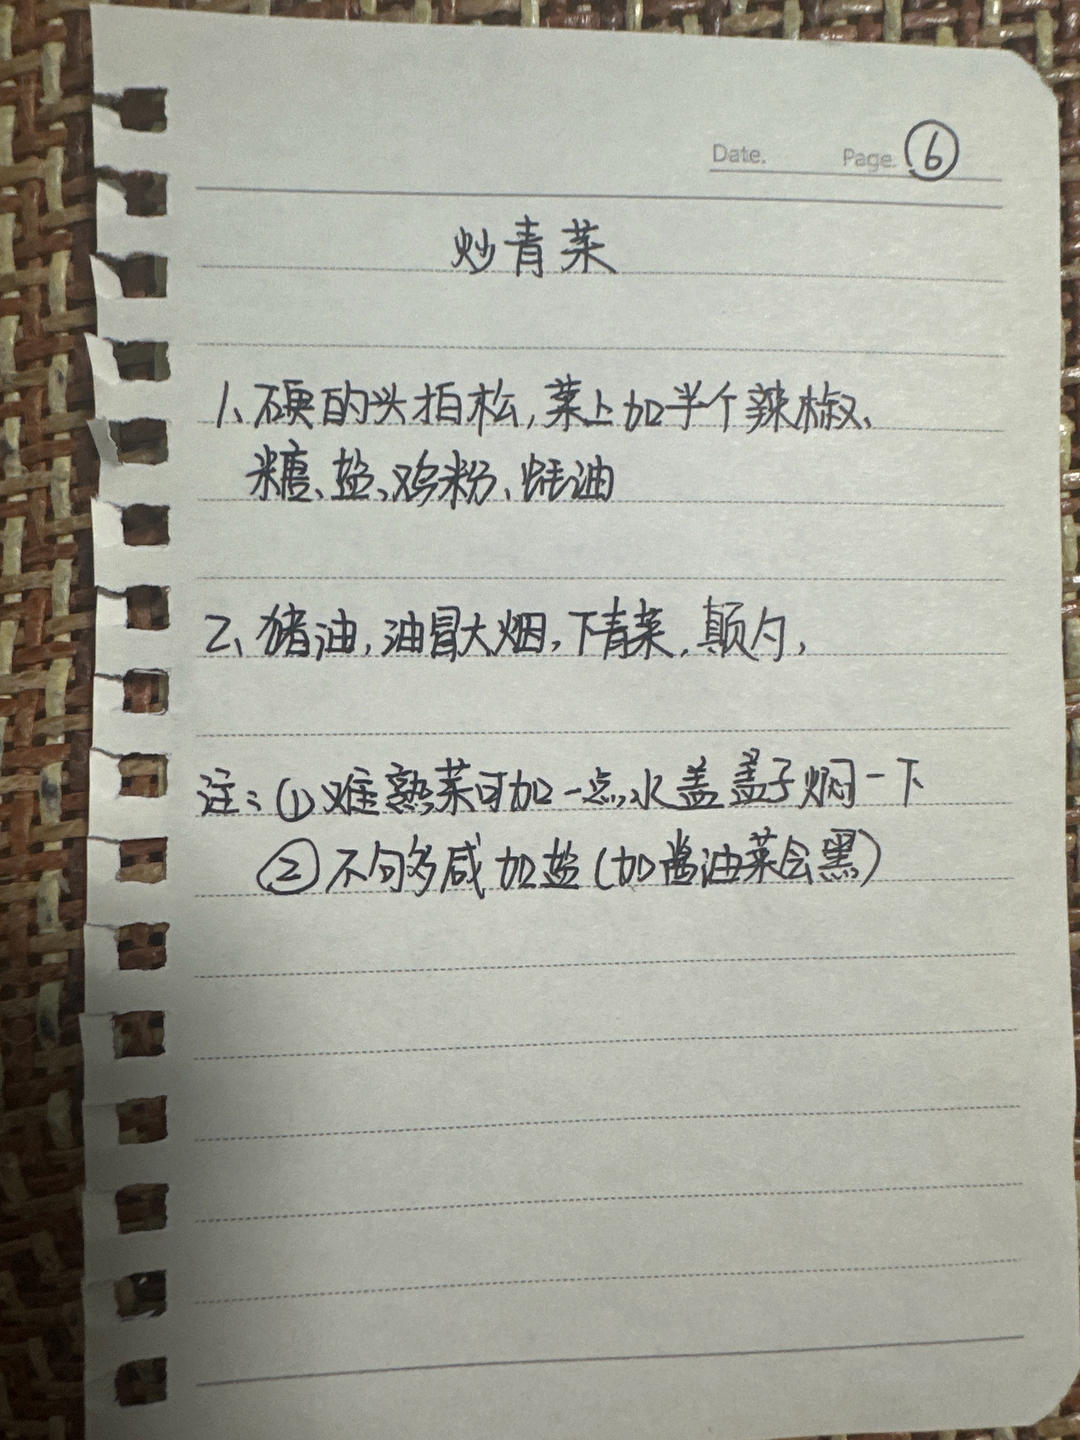 Date. Page. ⑥
炒青菜
1、硬的头拍松,菜上加半个辣椒、
糖、盐、鸡粉、蚝油
2、猪油,油冒大烟,下青菜,颠勺,
注:①难熟菜可加一点水盖盖子焖一下
②不够咸加盐(加酱油菜会黑)